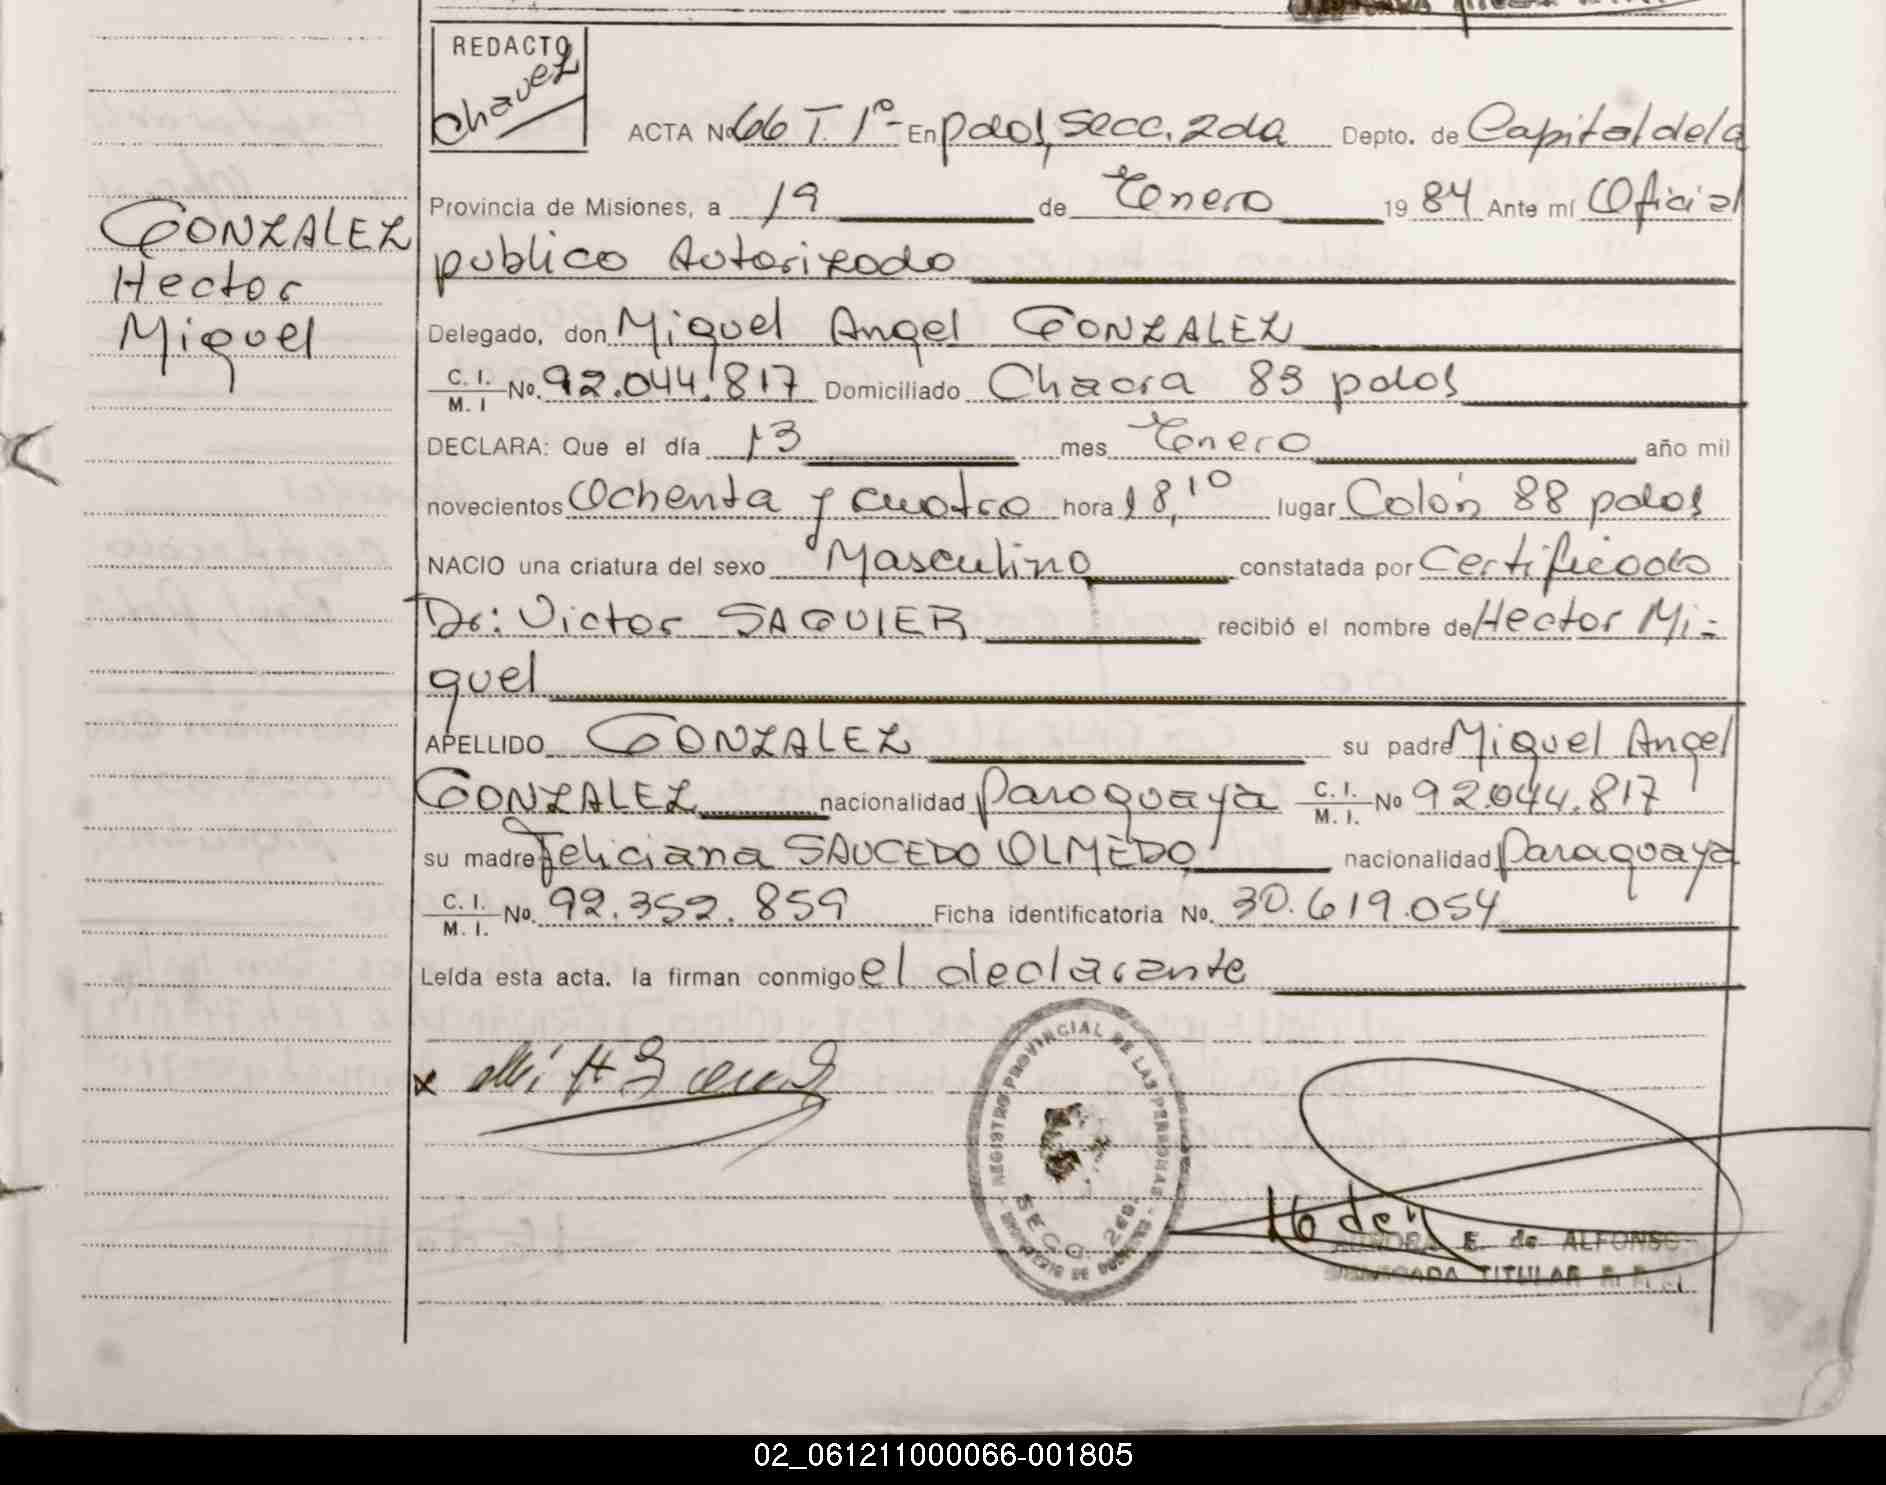 REDACTO
Chavez
ACTA No 66 T. 1º- En pdas, Secc. 2da Depto. de Capital de la
Provincia de Misiones, a 19 de Enero 1984 Ante mí Oficial
publico Autorizado
GONZALEZ
Hector
Miguel
Delegado, don Miguel Angel GONZALEZ
C. I. M. I No. 92.044.817 Domiciliado Chacra 83 pdas
DECLARA: Que el día 13 mes Enero año mil
novecientos Ochenta y cuatro hora 18,10 lugar Colón 88 pdas
NACIO una criatura del sexo Masculino constatada por Certificado
Dr: Victor SAGUIER recibió el nombre de Hector Mi-
guel
APELLIDO GONZALEZ su padre Miguel Angel
GONZALEZ nacionalidad Paraguaya C. I. M. I. No 92.044.817
su madre Feliciana SAUCEDO OLMEDO nacionalidad Paraguaya
C. I. M. I. No. 92.352.859 Ficha identificatoria No. 30.619.054
Leída esta acta. la firman conmigo el declarante
x
REGISTRO PROVINCIAL DE LAS PERSONAS
SECC. 2da.
E. de ALFONSO
DELEGADA TITULAR R. P. P.
02_061211000066-001805